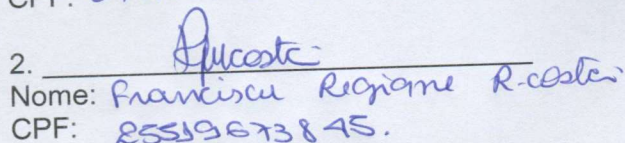 CPF:
2.
Nome: Francisca Regiane R. costa
CPF: 25519673845.